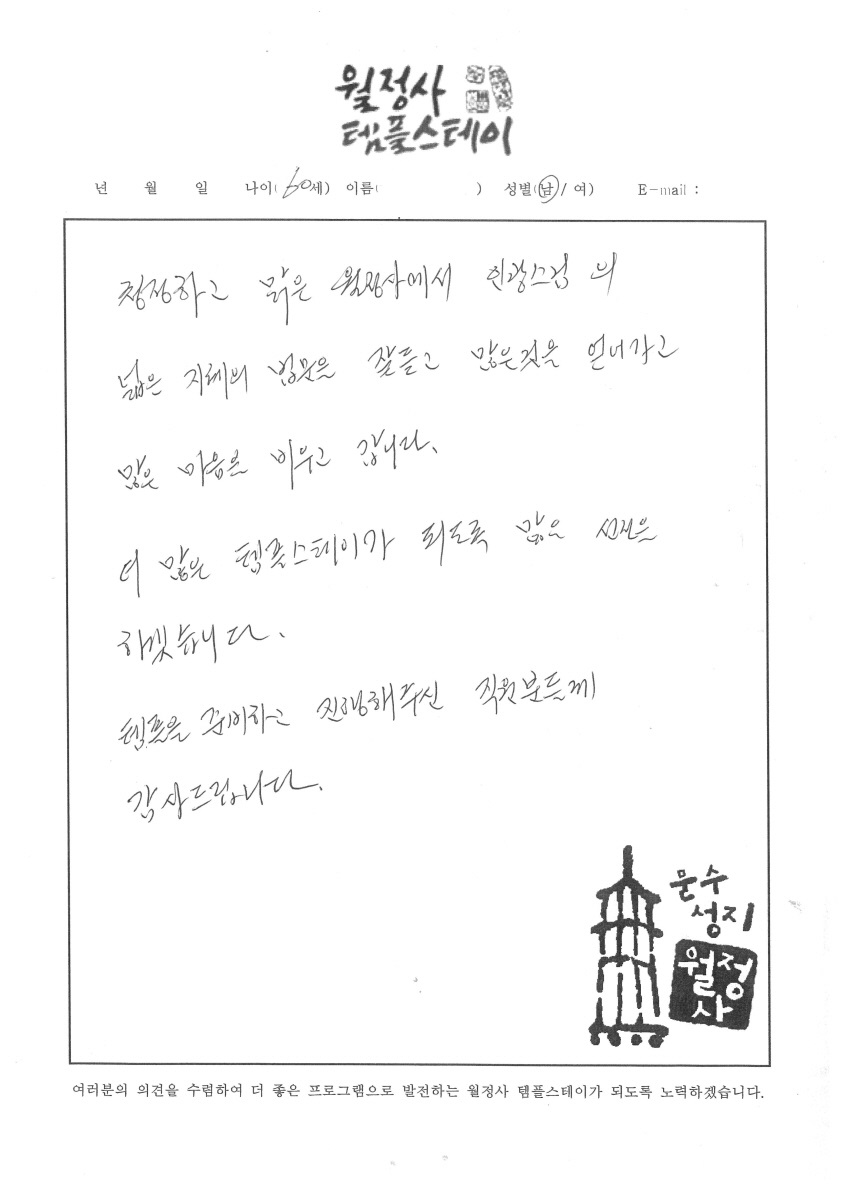 월정사
템플스테이
년 월 일 나이( 60세) 이름( ) 성별(남/여) E-mail :
청정하고 맑은 월정사에서 인광스님의
넓은 지혜의 법문을 잘듣고 많은것을 얻너가고
많은 마음을 비우고 갑니다.
더 많은 템플스테이가 되도록 많은 선전을
하겠습니다.
템플을 준비하고 진행해주신 직원분들께
감사드립니다.
문수
성지
월정
사
여러분의 의견을 수렴하여 더 좋은 프로그램으로 발전하는 월정사 템플스테이가 되도록 노력하겠습니다.